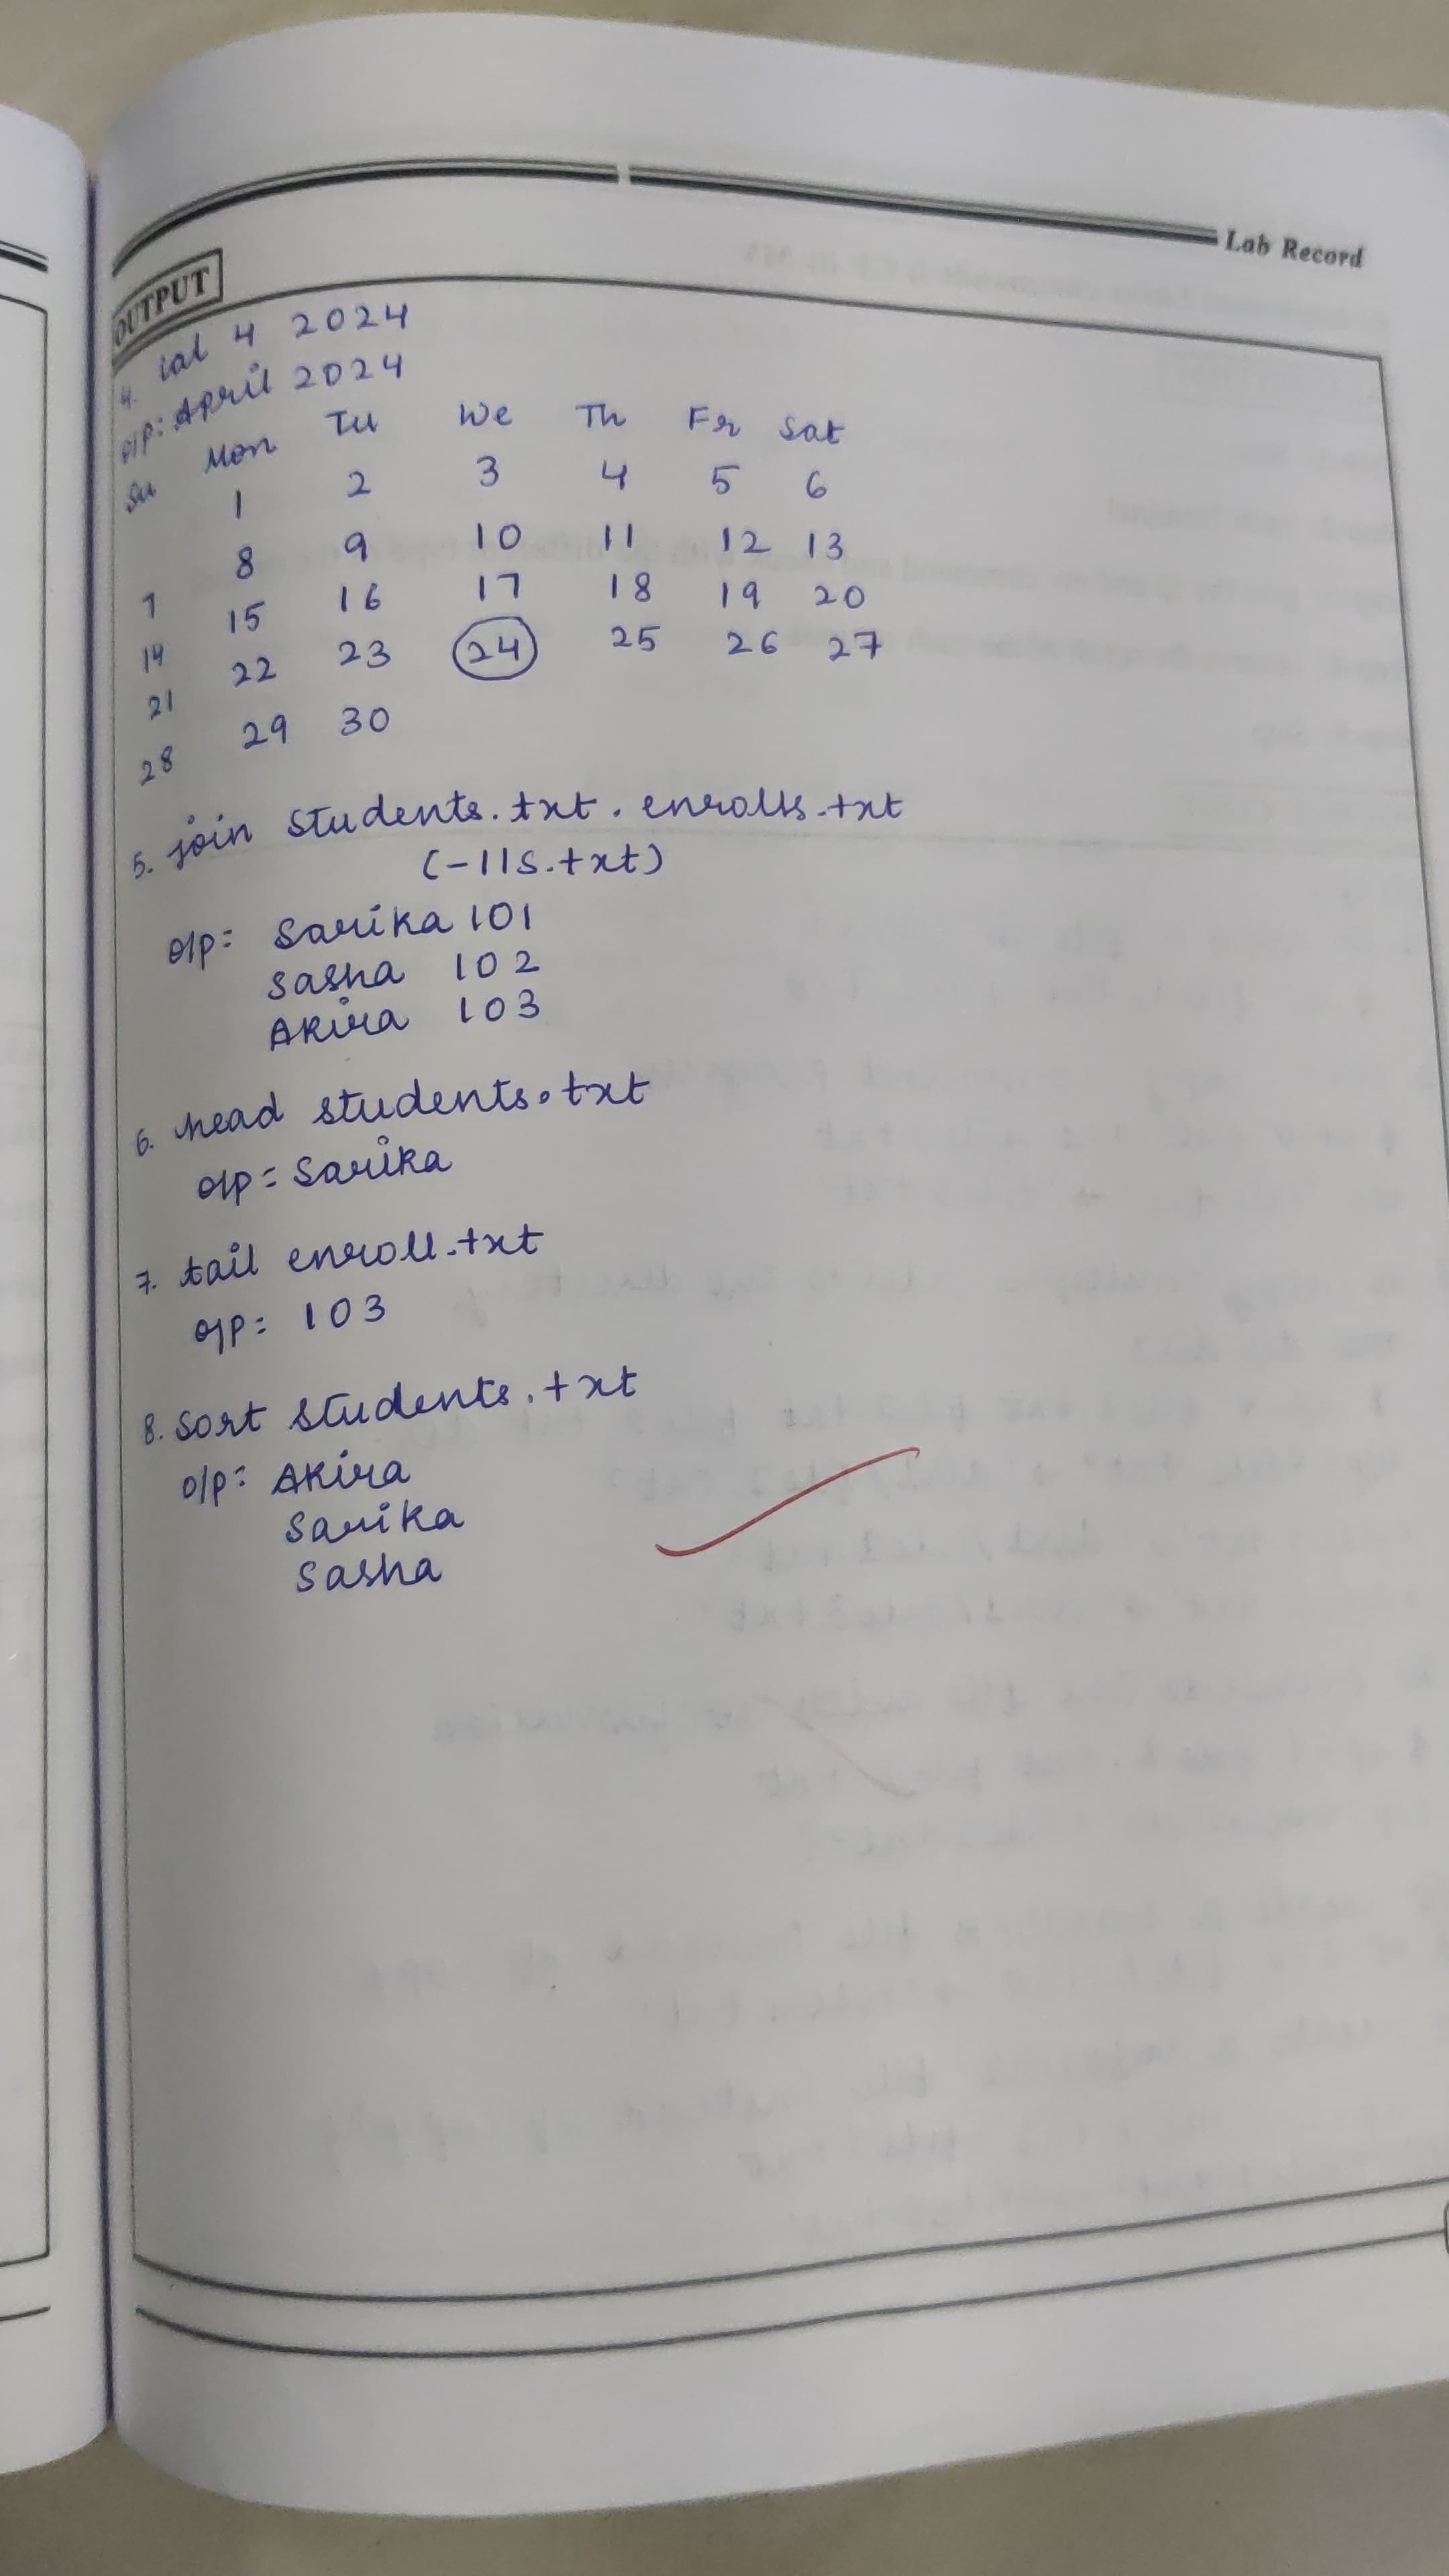 Lab Record
OUTPUT
4. cal 4 2024
o/p: April 2024
Su Mon Tu We Th Fr Sat
1 2 3 4 5 6
7 8 9 10 11 12 13
14 15 16 17 18 19 20
21 22 23 24 25 26 27
28 29 30
5. join students.txt . enrolls.txt
(-11s.txt)
o/p: Sarika 101
Sasha 102
Akira 103
6. head students.txt
o/p = Sarika
7. tail enroll.txt
o/p: 103
8. sort students.txt
o/p: Akira
Sarika
Sasha